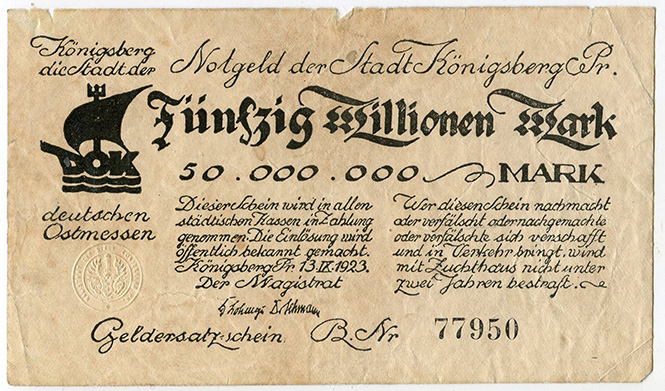 Königsberg
die Stadt der
Notgeld der Stadt Königsberg Pr.
Fünfzig Millionen Mark
DOK
50.000.000 MARK
deutschen
Ostmessen
Dieser Schein wird in allen
städtischen Kassen in Zahlung
genommen. Die Einlösung wird
öffentlich bekannt gemacht.
Königsberg Pr 13.IX.1923.
Der Magistrat
Wer diesen Schein nachmacht
oder verfälscht oder nachgemachte
oder verfälschte sich verschafft
und in Verkehr bringt, wird
mit Zuchthaus nicht unter
zwei Jahren bestraft.
Geldersatz-schein B. Nr 77950